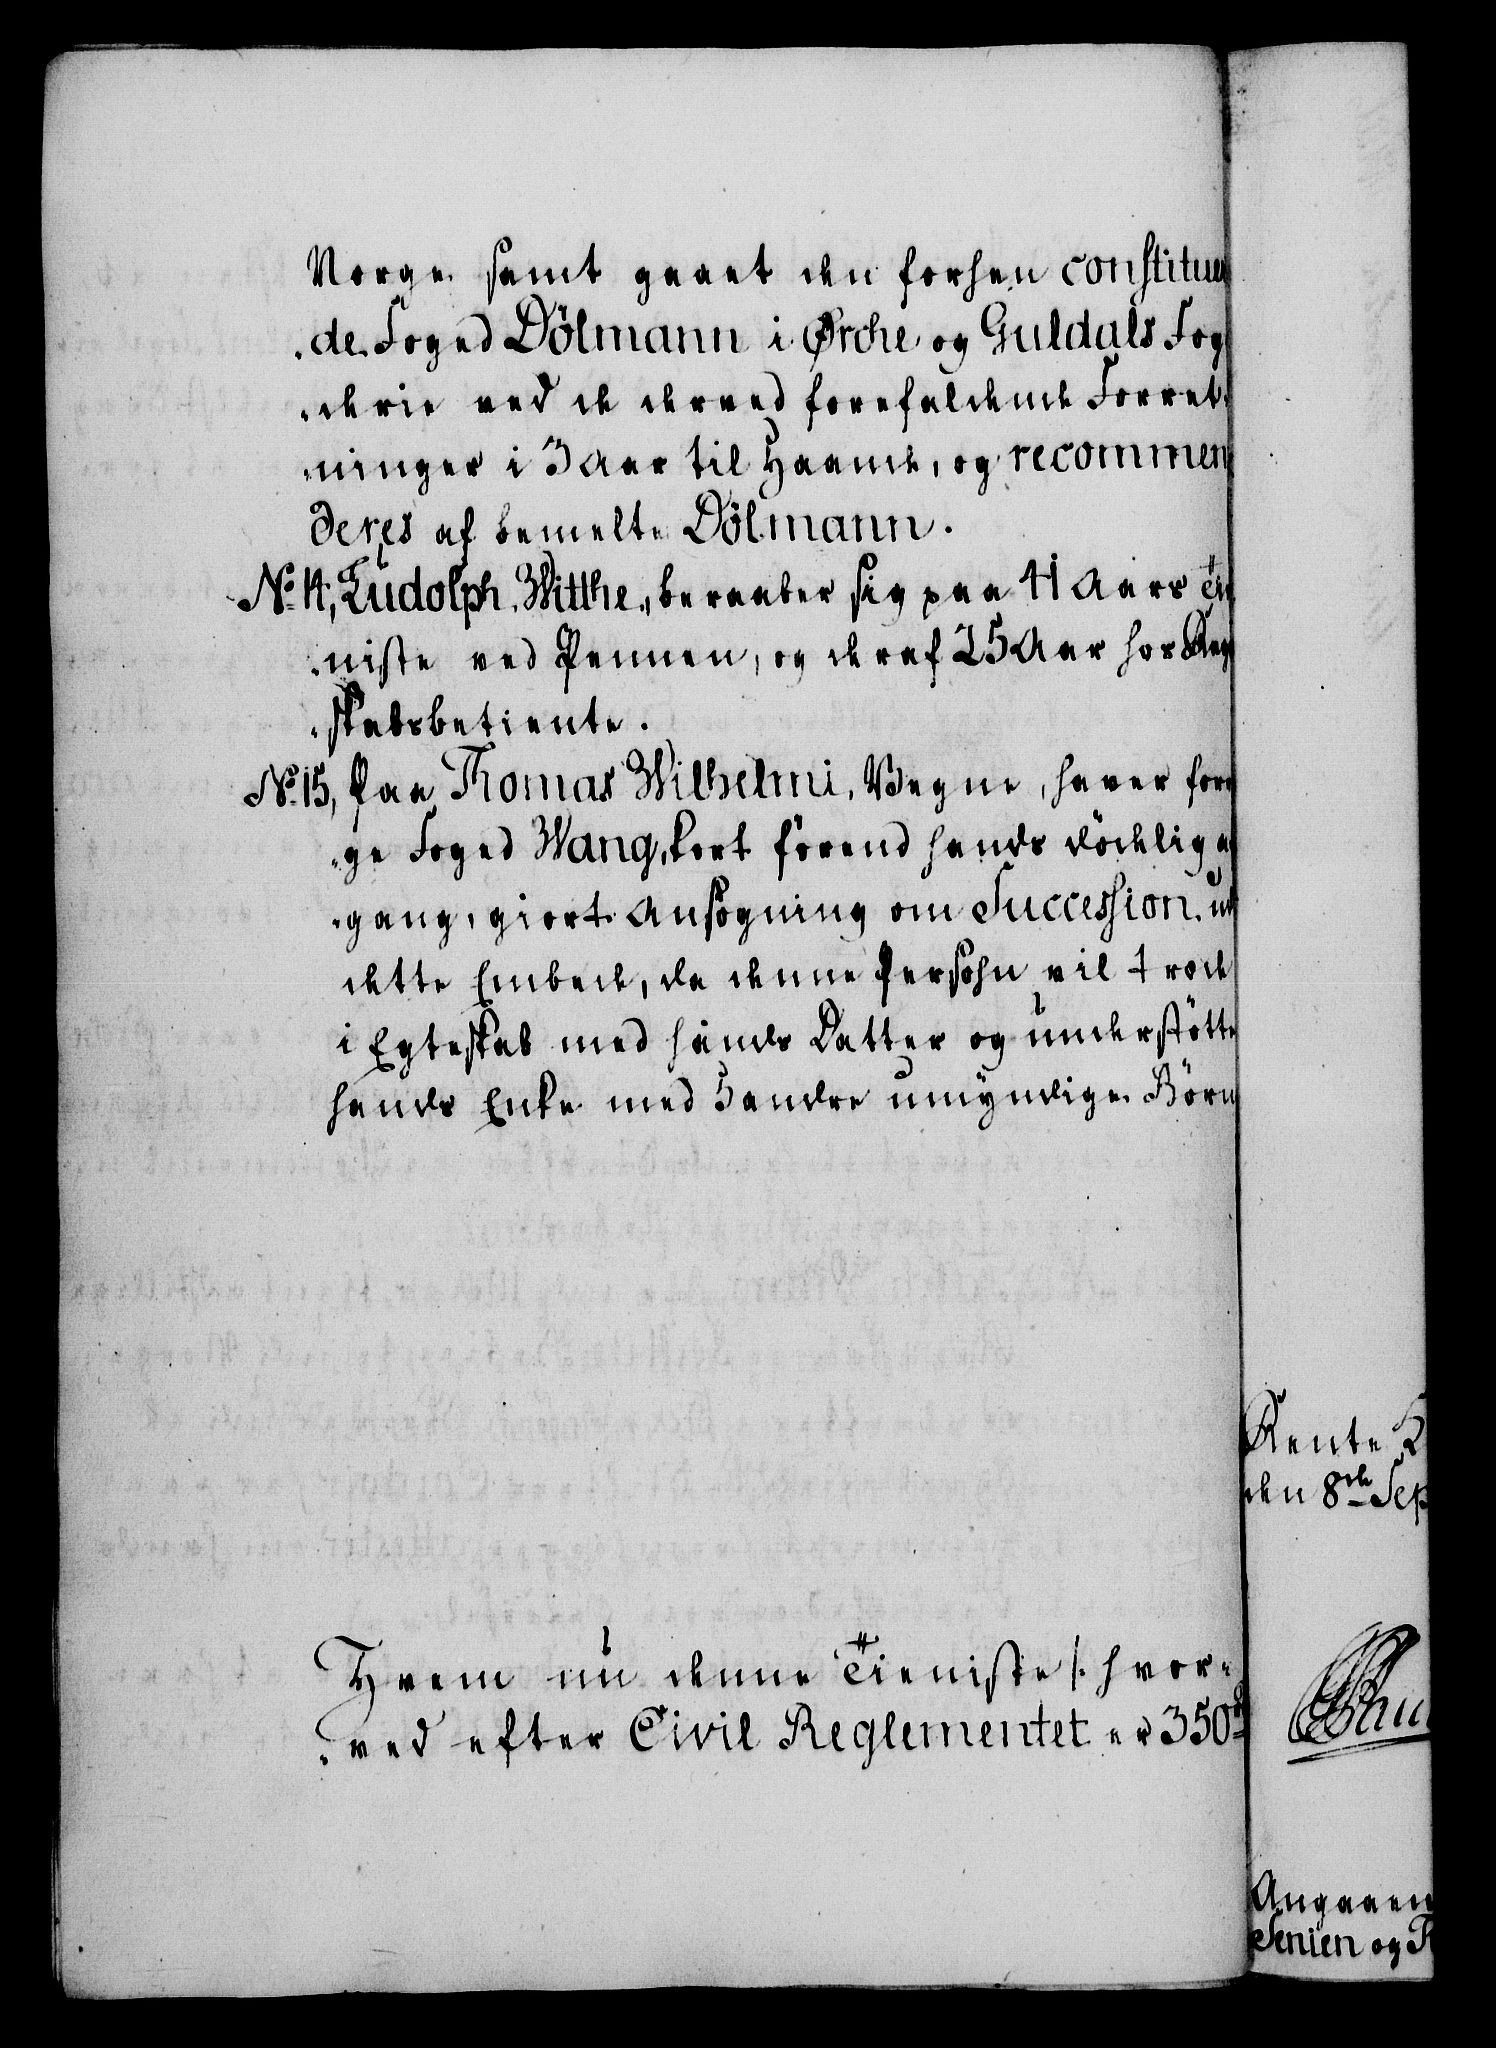 Norge samt gaaet den forhen constitue
de Foged Dölmann i Ørche og Guldals Fog
derie ved de derved forefaldende Forret-
ninger i 3 Aar til Haande, og recommen
deres af bemelte Dölmann.
No. 14, Ludolph Witthe, beraaber sig paa 41 Aars Tie
niste ved Pennen, og deraf 25 Aar hos Reg
skabsbetiente.
No. 15, Paa Thomas Wilhelmi Vegne, haver for
ge Foged Wang, kort förend hands dödelig
gang, giort Ansøgning om Succession
dette Embede, da denne Persohn vil træde
i Egteskab med hands Datter og understötte
hands Enke med 5 andre umyndige Börn
Hvem nu denne Tieniste /: hvor-
ved efter Civil Reglementet er 350
Rente K
den 8de Sep
Angaaen
Senien og